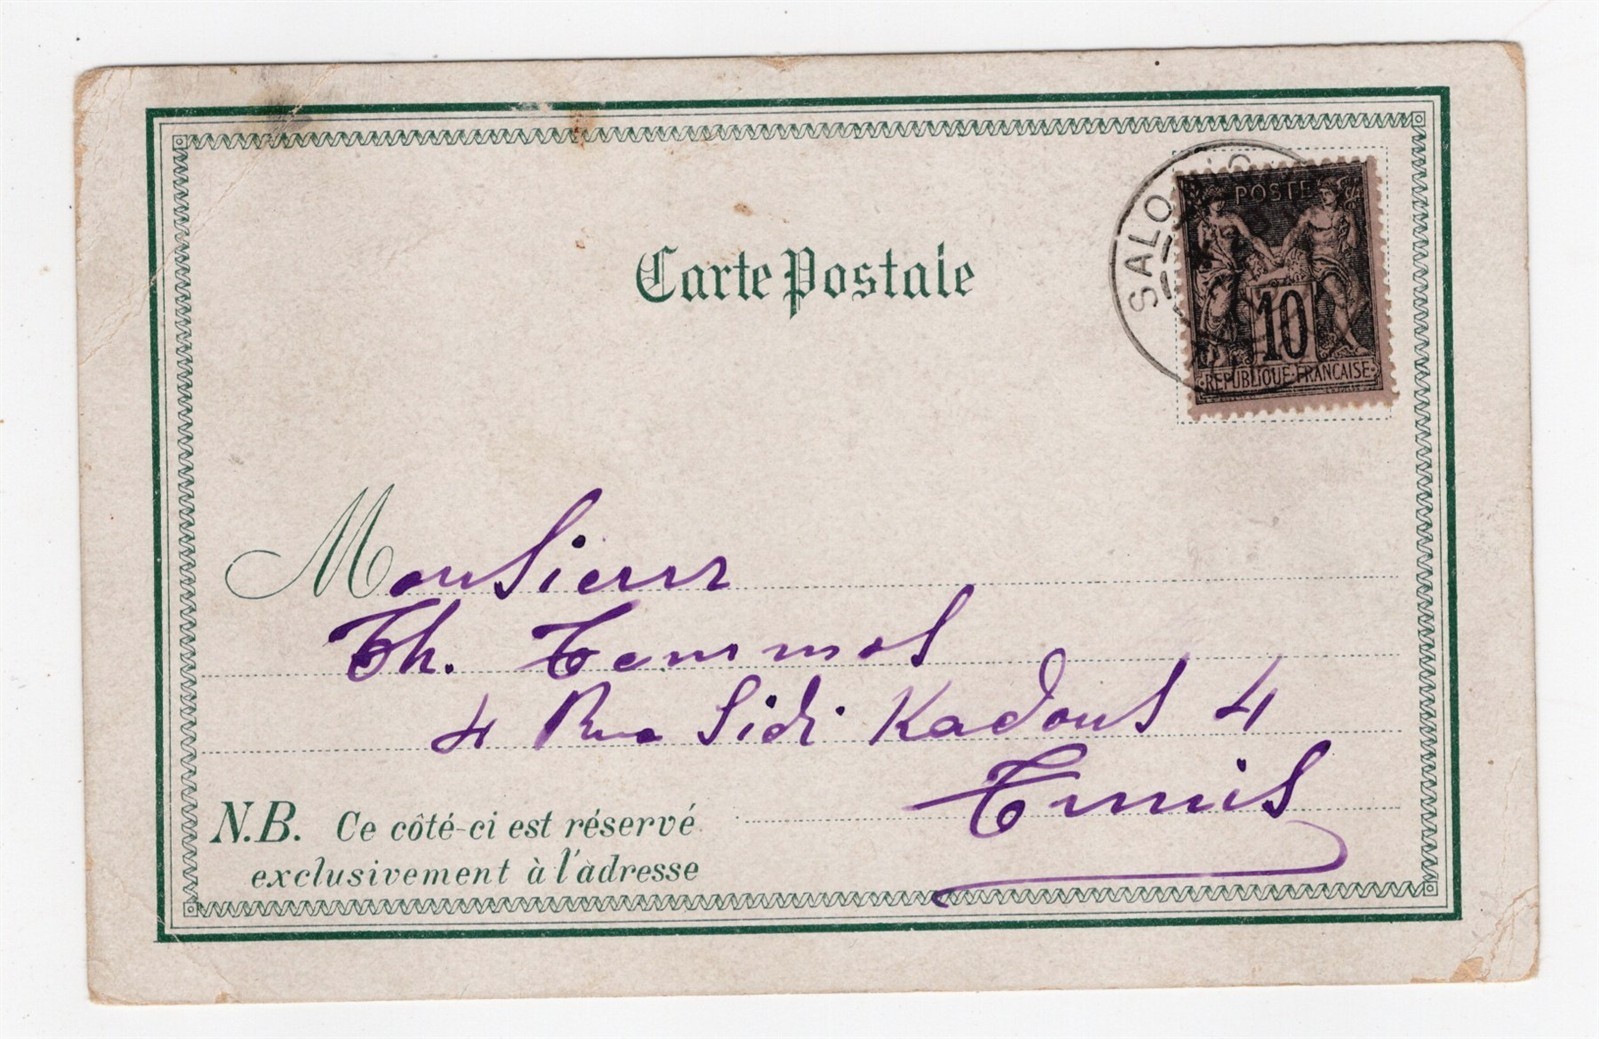 Carte Postale
SALO
POSTE
10
REPUBLIQUE FRANÇAISE
Monsieur
Th.
4 Rue Sidi Kadous 4
Tunis
N.B. Ce côté-ci est réservé
exclusivement à l'adresse